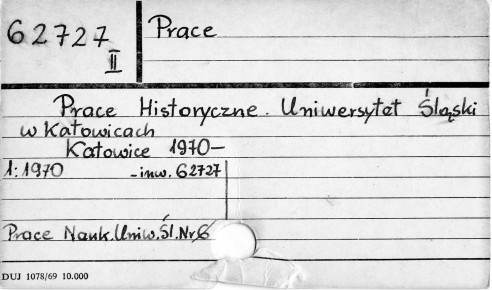 62727
II
Prace
Prace Historyczne. Uniwersytet Śląski
w Katowicach
Katowice 1970-
1:1970 -inw. 62727
Prace Nauk.Uniw.Śl.Nr,6
DUJ 1078/69 10.000